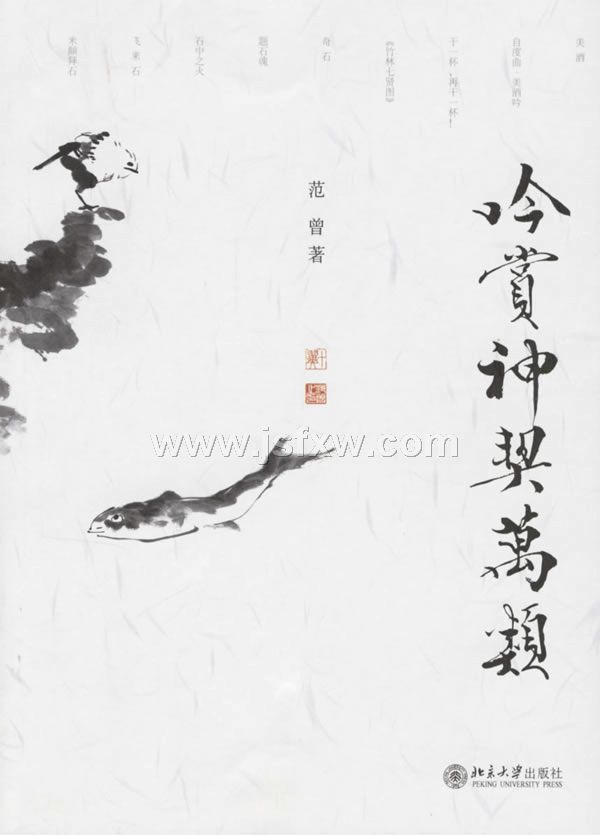 美酒
自度曲·美酒吟
干一杯，再干一杯！
《竹林七贤图》
奇石
题石魂
石中之火
飞来石
米颠拜石
吟赏神契萬類
范曾著
www.jsfxw.com
北京大学出版社
PEKING UNIVERSITY PRESS